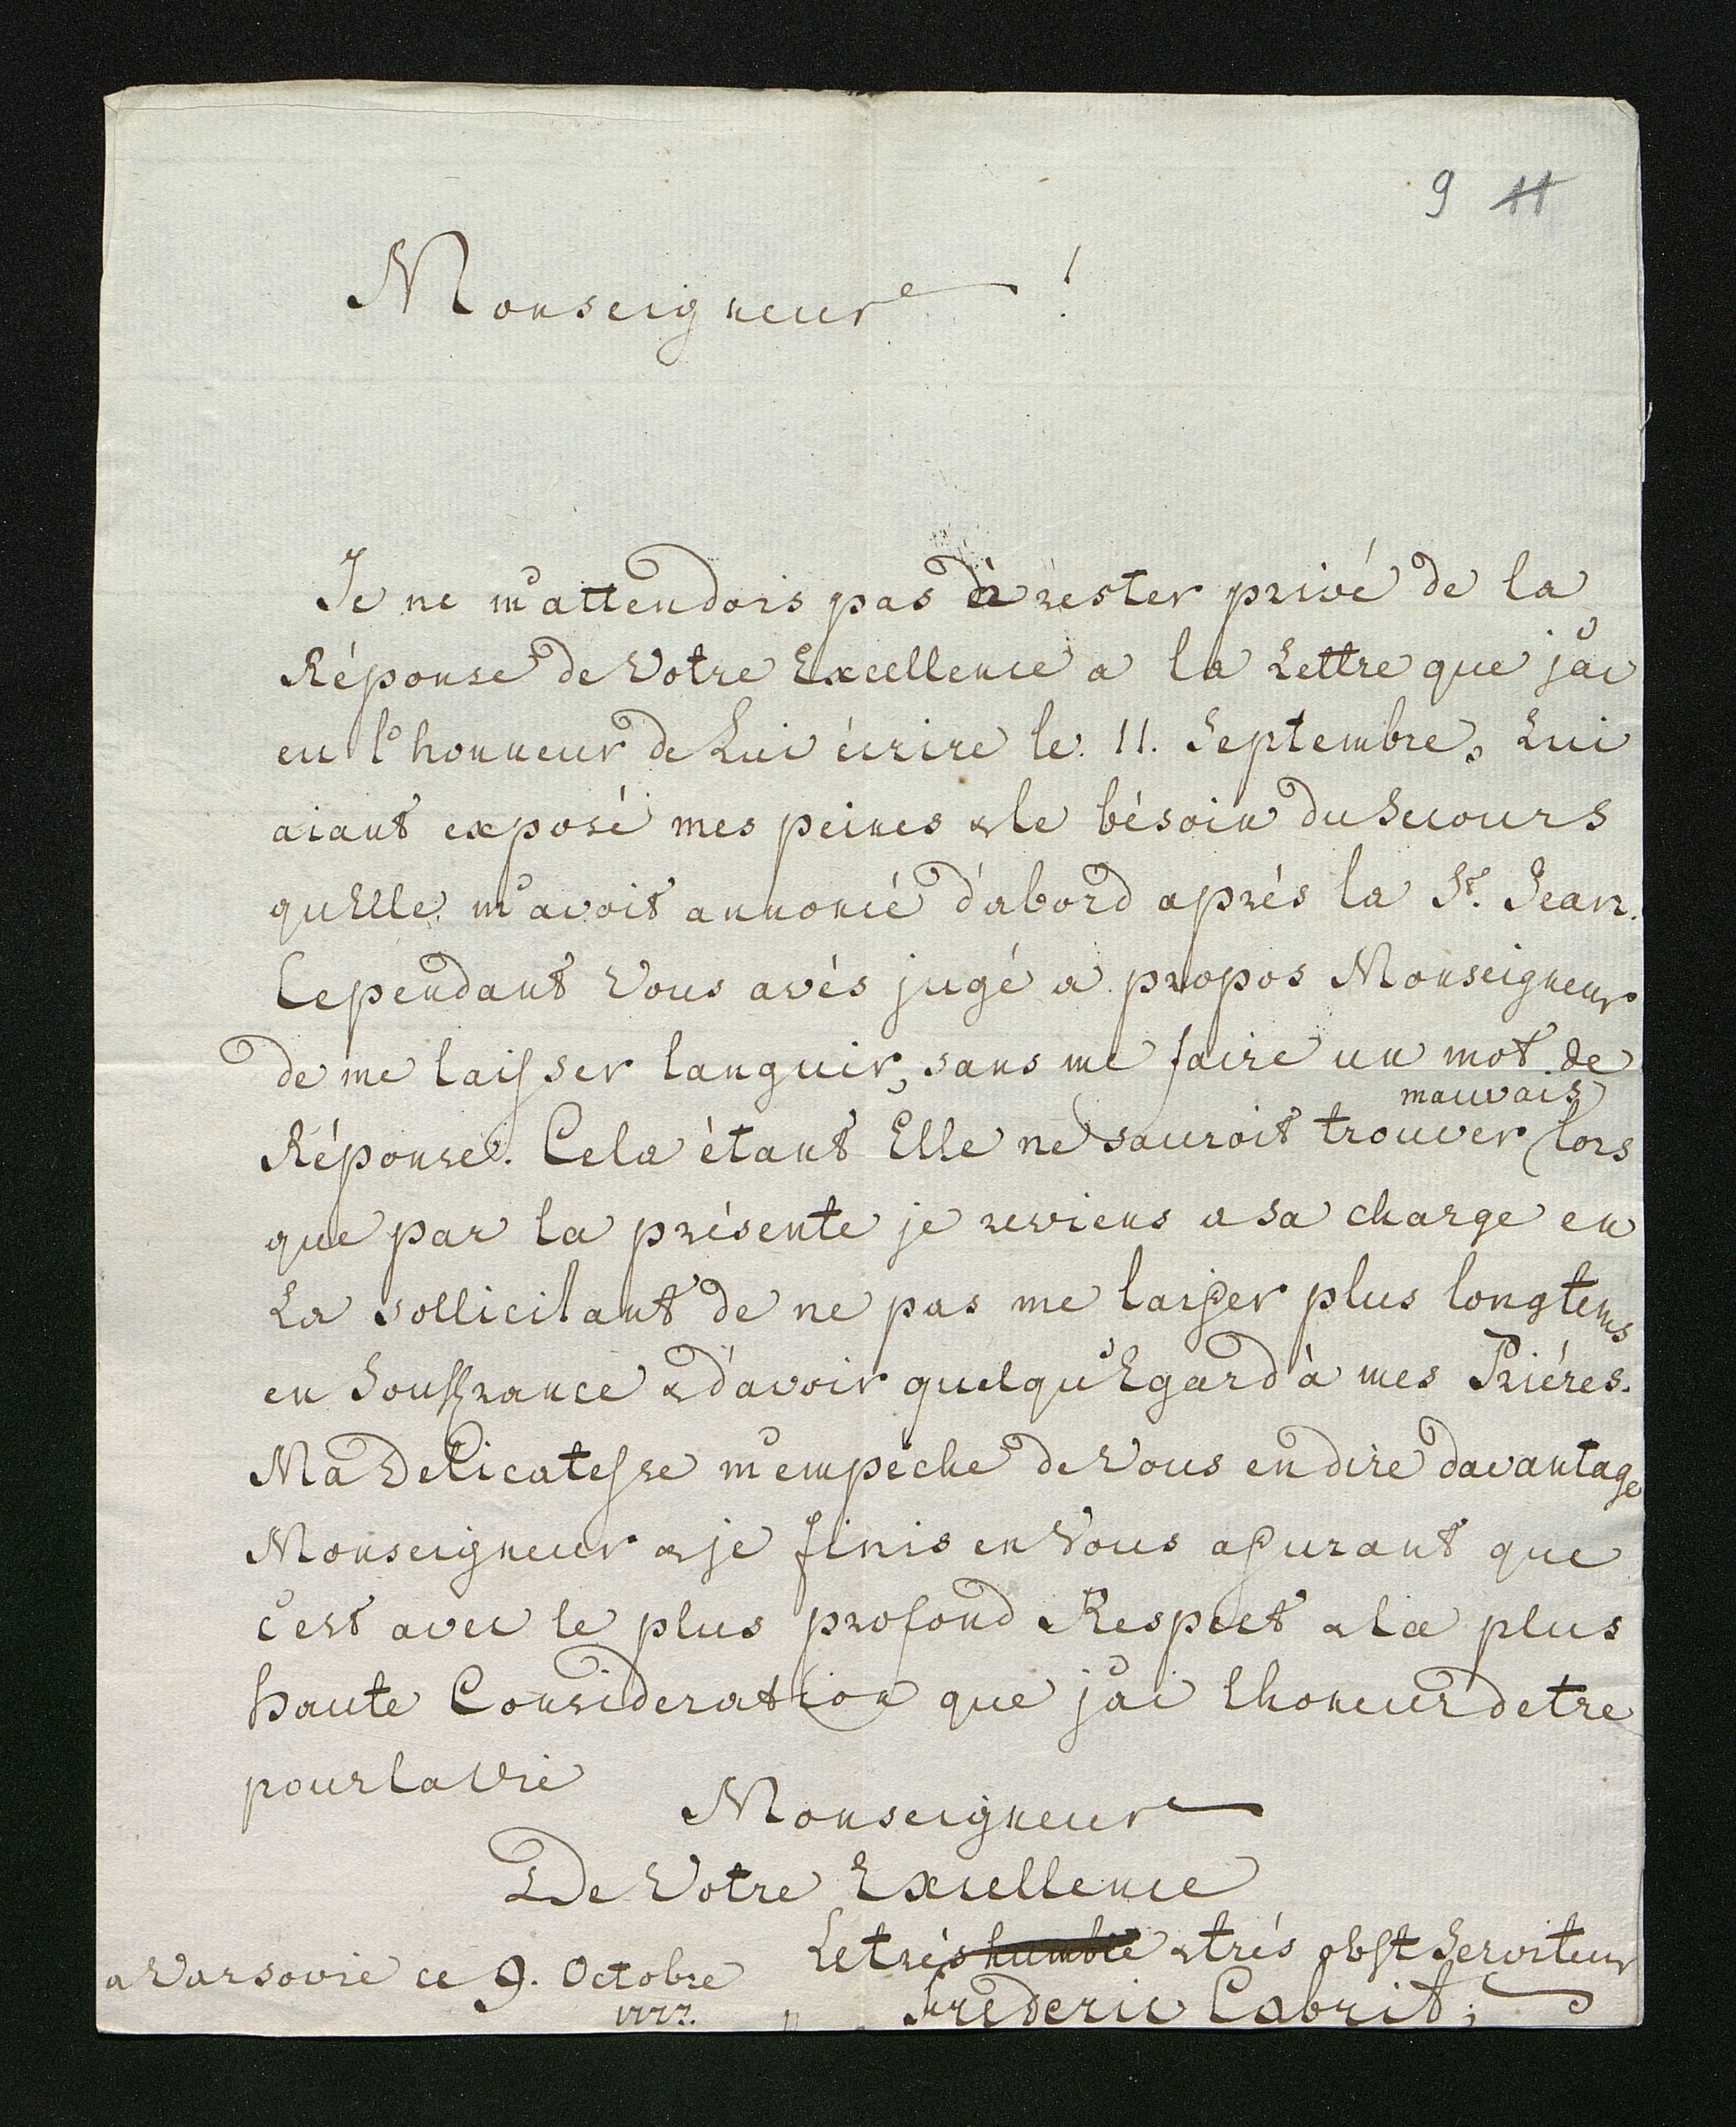 9 11
Monseigneur !
Je ne m'attendois pas à rester privé de la
Réponse de Votre Excellence a la Lettre que j'ai
eu l'honneur de Lui écrire le 11. Septembre, Lui
aiant exposé mes peines & le bésoin du Secours
qu'Elle m'avoit annoncé d'abord aprés la St. Jean.
Cependant Vous avés jugé a propos Monseigneur
de me laisser languir, sans me faire un mot de
mauvais
Réponse. Cela étant Elle ne sauroit trouver lors
que par la présente je reviens a sa charge en
La sollicitant de ne pas me laisser plus longtems
en Souffrance & d'avoir quelqu'Egard à mes Priéres.
Ma Delicatesse m'empéche de Vous en dire davantage
Monseigneur & je finis en Vous assurant que
c'est avec le plus profond Respect & la plus
haute Consideration que j'ai l'honeur d'etre
pour la Vie
Monseigneur
De Votre Excellence
Le trés humble & trés obst Serviteur
a Varsovie ce 9. Octobre
1777.
Frederic Cabrit;